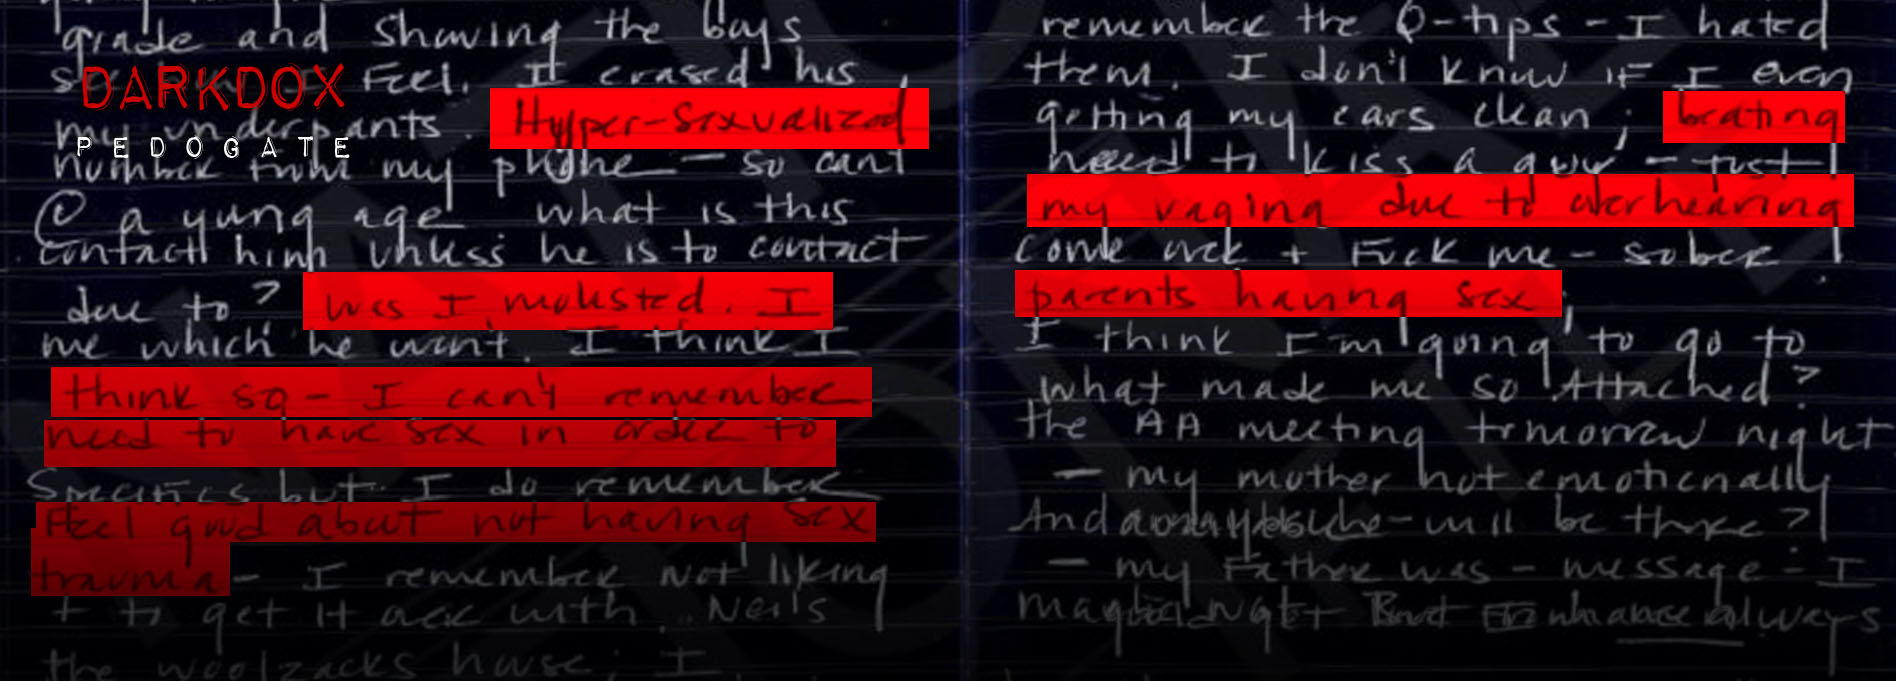 grade and showing the boys
DARKDOX
Feel. I erased his
Hyper-sexualized
my underpants.
PEDOGATE
number from my phone – so can't
@ a yung age what is this
contact him unless he is to contact
due to? Was I molested. I
me which he won't. I think I
think so – I can't remember
need to have sex in order to
specifics but I do remember
Feel good about not having sex
trauma – I remember not liking
+ to get it with
the woolzacks house; I
remember the Q-tips – I hated
them. I don't know if I even
getting my ears clean; beating
need to kiss a guy – just
my vagina due to overhearing
come over + Fuck me – sober
parents having sex;
I think I'm going to go to
what made me so Attached?
the AA meeting tomorrow night
– my mother not emotionally
And will be there?
– my Father was – message – I
always